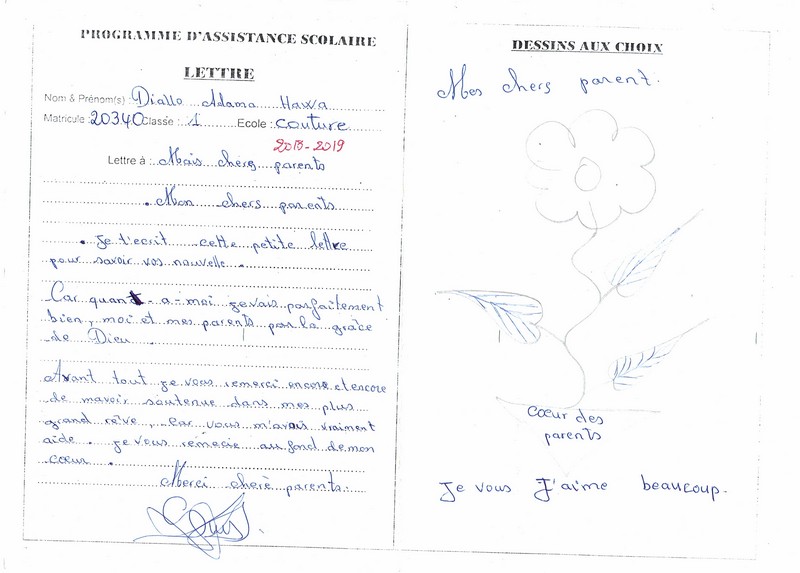 PROGRAMME D'ASSISTANCE SCOLAIRE
LETTRE
Nom & Prénom(s) : Diallo Adama Hawa
Matricule : 20340 Classe : 1 Ecole : Couture
2018-2019
Lettre à : Mais chers parents
Mon chers parents
Je t'ecrit cette petite lettre
pour savoir vos nouvelle.
Car quant a-moi je vais parfaitement
bien, moi et mes parents par la grâce
de Dieu
Avant tout je vous remerci encore et encore
de m'avoir soutenue dans mes plus
grand rêve, Car vous m'avais vraiment
aide. je vous remercie au fond de mon
cœur.
Merci cherè parents.
DESSINS AUX CHOIX
Mes chers parent.
Cœur des
parents
Je vous J'aime beaucoup.